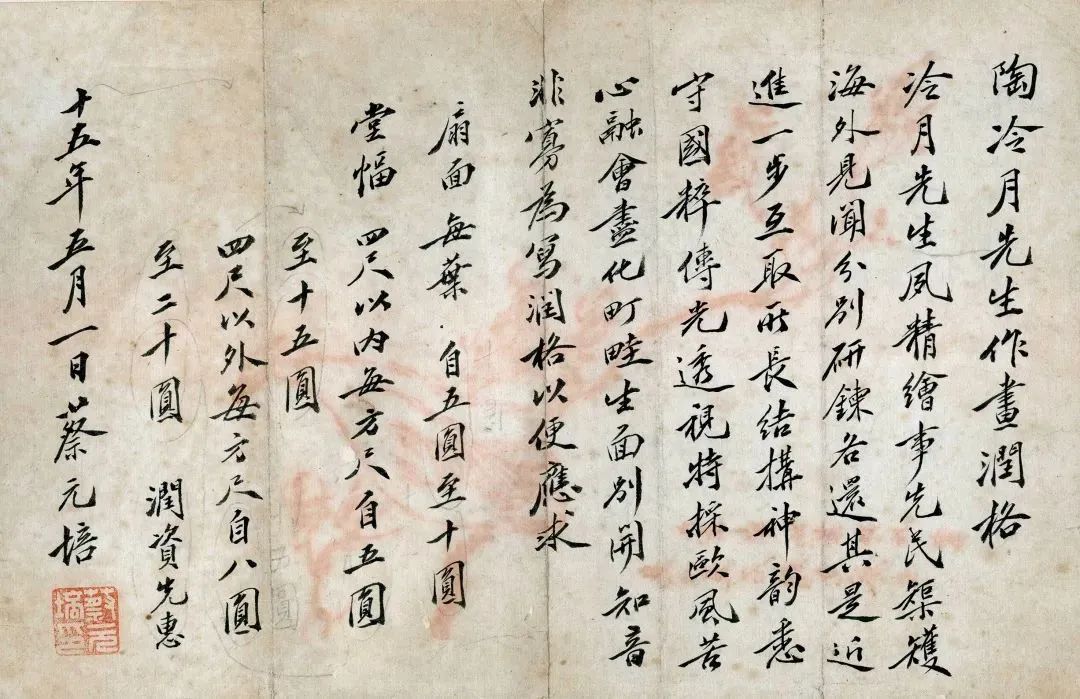 陶冷月先生作畫潤格
冷月先生夙精繪事先民榘矱
海外見聞分別研鍊各還其是近
進一步互取所長結搆神韵悉
守國粹傳光透視特採歐風苦
心融會盡化町畦生面別開知音
非寡為寫潤格以便應求
扇面 每葉 自五圓至十圓
堂幅 四尺以內每方尺自五圓
至十五圓
四尺以外每方尺自八圓
至二十圓 潤資先惠
十五年五月一日蔡元培
蔡元培